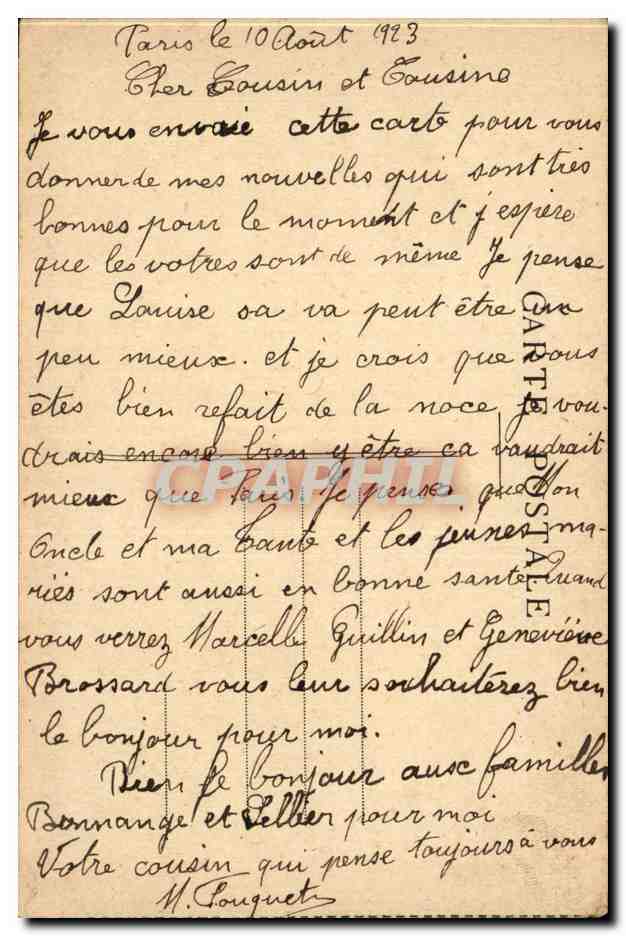 Paris le 10 Août 1923
Cher Cousin et Cousine
Je vous envoie cette carte pour vous
donner de mes nouvelles qui sont très
bonnes pour le moment et j'espère
que les votres sont de même Je pense
que Louise sa va peut être un
peu mieux. et je crois que vous
êtes bien refait de la noce, je vou-
drais encore bien y être ca vaudrait
mieux que Paris. Je penses que Mon
Oncle et ma Tante et les jeunes ma-
riés sont aussi en bonne sante Quand
vous verrez Marcelle Guillin et Geneviève
Brossard vous leur souhaiterez bien
le bonjour pour moi.
Bien le bonjour aux familles
Bonnange et Sellier pour moi
Votre cousin qui pense toujours à vous
M. Fouquet
CARTE POSTALE
CPAPHIL